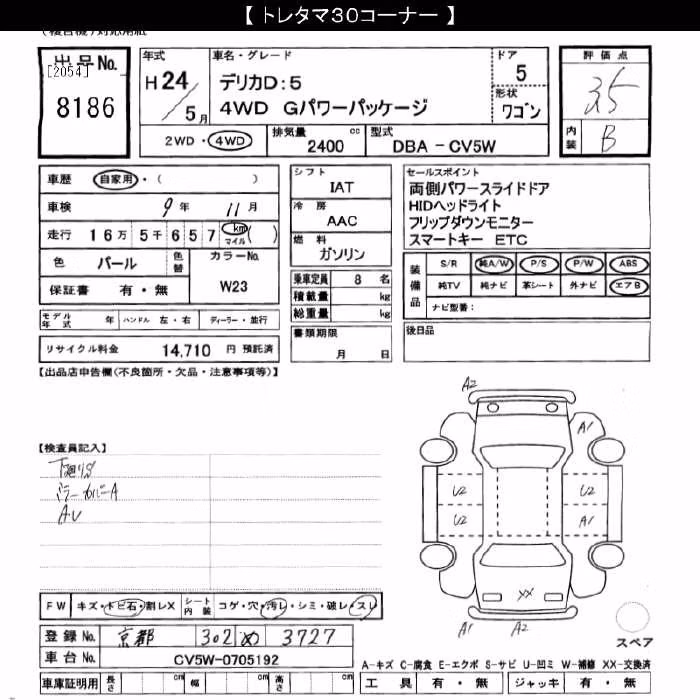 【 トレタマ30コーナー 】
(複合機)対応用紙
出品No.
[2054]
8186
年式
H 24/5月
車名・グレード
デリカD:5
4WD Gパワーパッケージ
ドア
5
形状
ワゴン
2WD・4WD
排気量 2400 cc
型式 DBA - CV5W
評価点
3.5
内装 B
車歴 自家用・( )
車検 9年 11月
走行 16万5千657 km マイル ( )
色 パール 色替
カラーNo. W23
保証書 有・無
シフト IAT
冷房 AAC
燃料 ガソリン
乗車定員 8 名
積載量 kg
総重量 kg
セールスポイント
両側パワースライドドア
HIDヘッドライト
フリップダウンモニター
スマートキー ETC
装備品
S/R 純A/W P/S P/W ABS
純TV 純ナビ 革シート 外ナビ エアB
ナビ型番:
モデル年式 年 ハンドル 左・右 ディーラー・並行
リサイクル料金 14,710 円 預託済
書類期限
月 日
後日品
【出品店申告欄(不良箇所・欠品・注意事項等)】
【検査員記入】
下廻りS
ミラーカバーA
AU
A2
A1
U2 U2
U2 A1
XX
A1 A2
スペア
FW キズ・トビ石・割レX
シート内装 コゲ・穴・汚レ・シミ・破レ・スレ
登録No. 京都 302 め 3727
車台No. CV5W-0705192
車庫証明用 長さ cm 幅 cm 高さ cm
A-キズ C-腐食 E-エクボ S-サビ U-凹ミ W-補修 XX-交換済
工具 有・無 ジャッキ 有・無